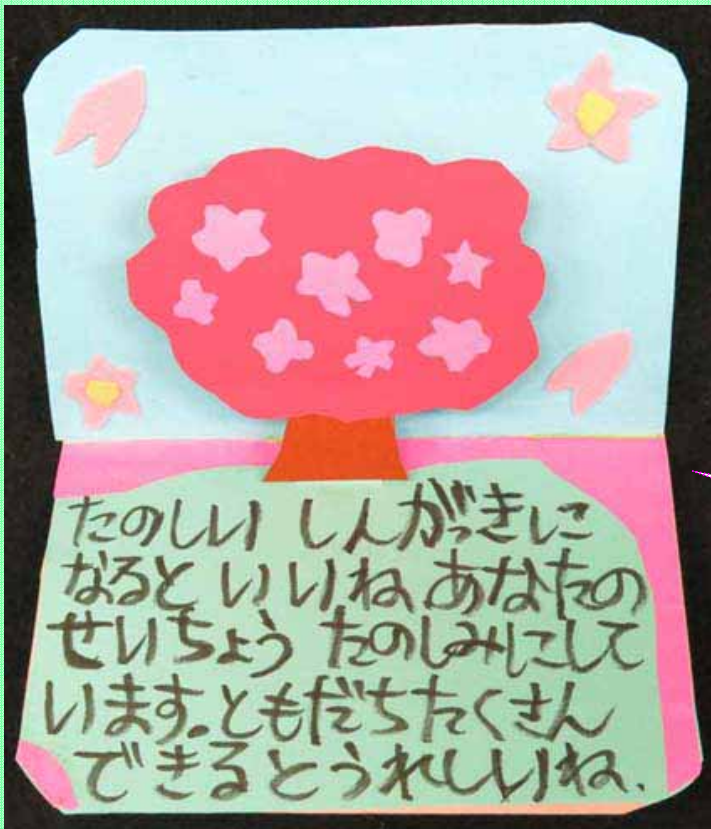 たのしい しんがっきに
なると いいね、あなたの
せいちょう たのしみにして
います。ともだちたくさん
できるとうれしいね、